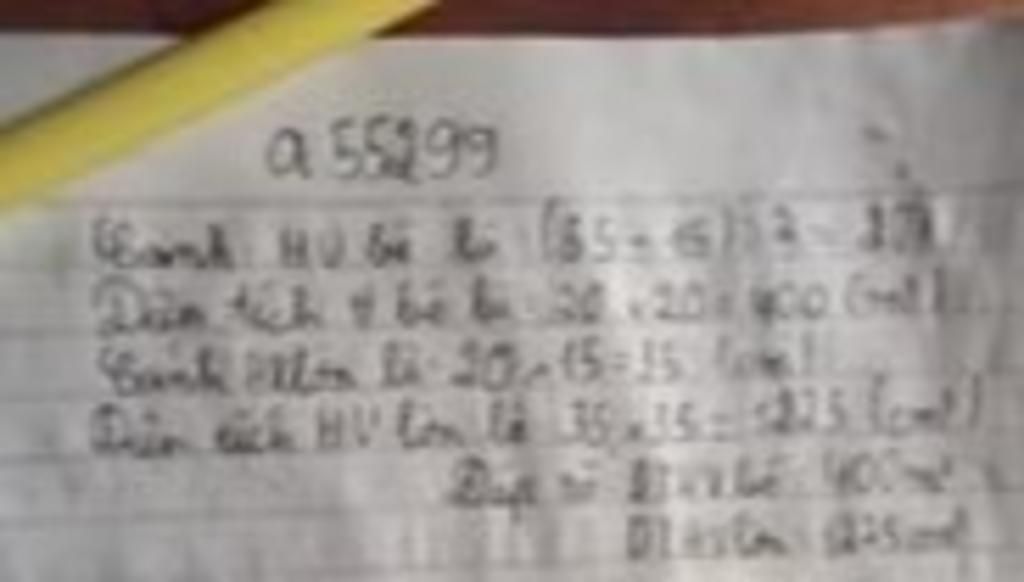 a 55299
Cạnh HV bé là (55 - 15) : 2 =
Diện tích V bé là: 20 x 20 = 400
Cạnh lớn là: 20 + 15 = 35 (cm)
Diện tích HV lớn là 35 x 35 = 1225 (cm²)
Đáp số DT bé: 400 cm²
DT lớn: 1225 cm²